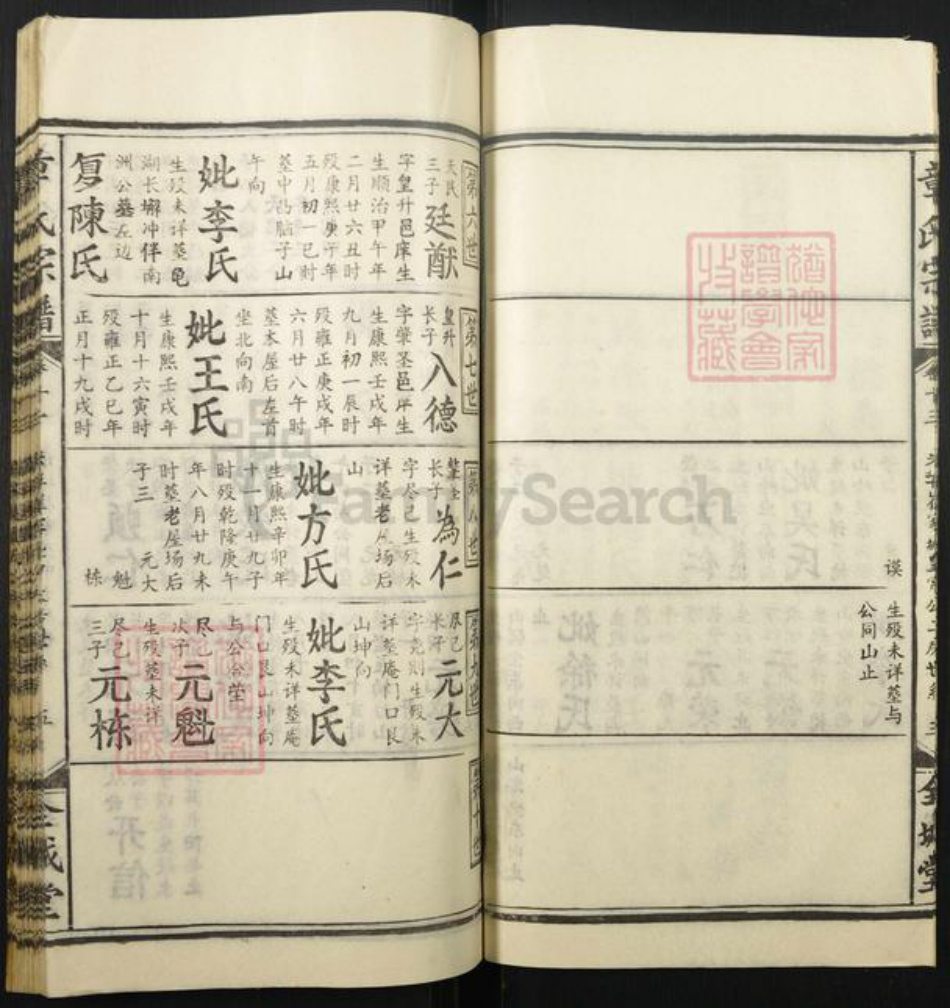 章氏宗譜
谟
生殁未详墓与
公同山止
第六世
天民
三子
廷猷
字皇升邑庠生
生顺治甲午年
二月廿六丑时
殁康熙庚午年
五月初一巳时
墓中凸脑子山
午向
妣李氏
生殁未详墓龟
湖长塀冲伴南
洲公墓左边
复陳氏
第七世
皇升
长子
入德
字肇圣邑庠生
生康熙壬戌年
九月初一辰时
殁雍正庚戌年
六月廿八午时
墓本屋后左首
坐北向南
妣王氏
生康熙壬戌年
十月十六寅时
殁雍正乙巳年
正月十九戌时
第八世
肇圣
长子
為仁
字尽己生殁未
详墓老屋场后
山
妣方氏
生康熙辛卯年
十一月廿九子
时殁乾隆庚午
年八月廿九未
时墓老屋场后
子三 元大
魁
栋
第九世
尽己
长子
元大
字尧则生殁未
详墓庵门口艮
山坤向
妣李氏
生殁未详墓庵
门口艮山坤向
与公合茔
尽己
次子
元魁
生殁墓未详
尽己
三子
元栋
第十世
章氏宗譜
五
全城堂
全城堂
FamilySearch